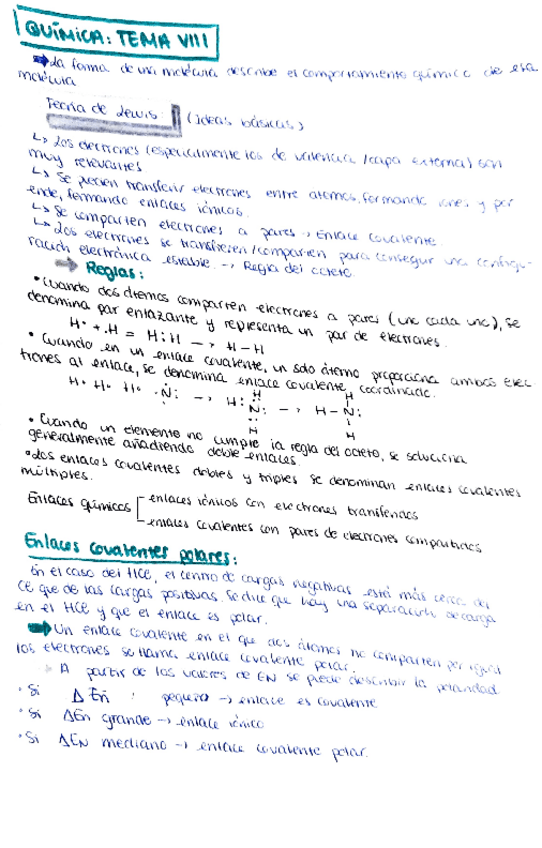 QUÍMICA: TEMA VIII
La forma de una molécula describe el comportamiento químico de esa
molécula
Teoría de Lewis: (ideas básicas)
↳ Los electrones (especialmente los de valencia / capa externa) son
muy relevantes
↳ Se pueden transferir electrones entre átomos, formando iones y por
ende, formando enlaces iónicos.
↳ Se comparten electrones a pares → Enlace covalente
↳ Los electrones se transfieren/comparten para conseguir una configu-
ración electrónica estable → Regla del octeto.
Reglas:
• Cuando dos átomos comparten electrones a pares (uno cada uno), se
denomina par enlazante y representa un par de electrones.
H· + ·H = H:H → H-H
• Cuando en un enlace covalente, un solo átomo proporciona ambos elec-
trones al enlace, se denomina enlace covalente coordinado.
H
H
H· H· H· ·N: → H:N: → H-N:
H
H
• Cuando un elemento no cumple la regla del octeto, se soluciona
generalmente añadiendo doble enlaces.
• Los enlaces covalentes dobles y triples se denominan enlaces covalentes
múltiples.
Enlaces químicos [ enlaces iónicos con electrones transferidos
enlaces covalentes con pares de electrones compartidos
Enlaces covalentes polares:
En el caso del HCl, el centro de cargas negativas está más cerca del
Cl que de las cargas positivas. Se dice que hay una separación de carga
en el HCl y que el enlace es polar.
Un enlace covalente en el que dos átomos no comparten por igual
los electrones se llama enlace covalente polar.
A partir de los valores de EN se puede describir la polaridad
• Si ΔEN pequeña → enlace es covalente
• Si ΔEN grande → enlace iónico
• Si ΔEN mediano → enlace covalente polar.